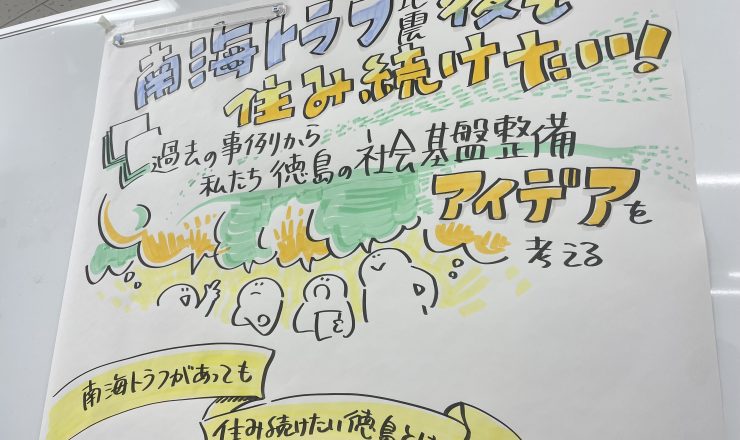 南海トラフ地震後も
住み続けたい!
過去の事例から
私たち徳島の社会基盤整備
アイデアを
考える
南海トラフがあっても
住み続けたい徳島とは